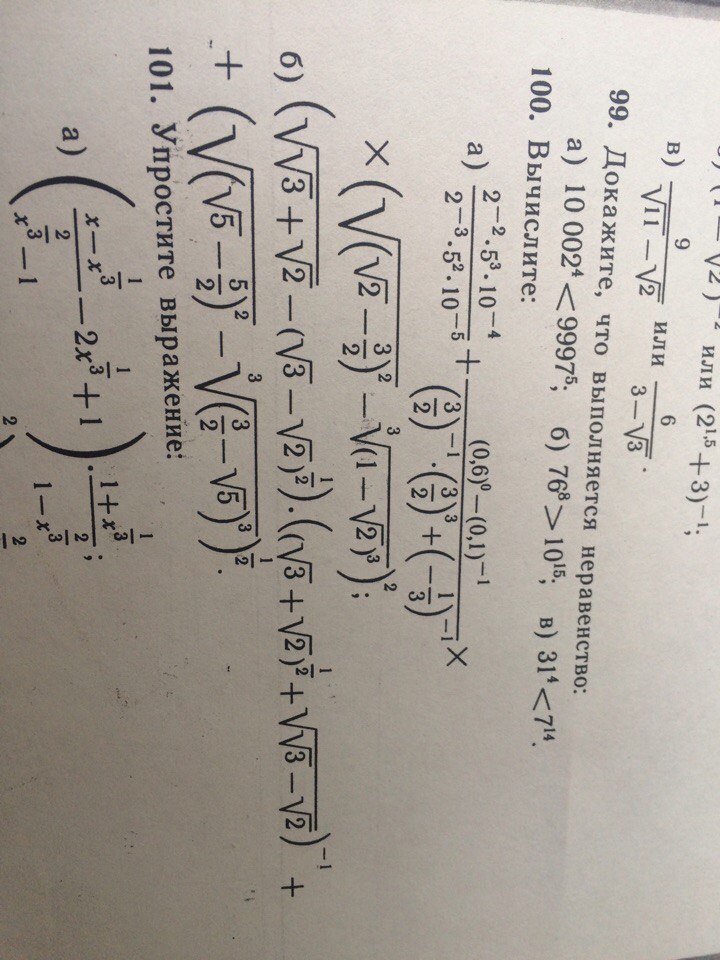 или (2^{1,5}+3)^{-1};
в) \frac{9}{\sqrt{11}-\sqrt{2}} или \frac{6}{3-\sqrt{3}}.
99. Докажите, что выполняется неравенство:
а) 10 002^4 < 9997^5; б) 76^8 > 10^{15}; в) 31^4 < 7^{14}.
100. Вычислите:
а) \frac{2^{-2}·5^3·10^{-4}}{2^{-3}·5^2·10^{-5}} + \frac{(0,6)^0-(0,1)^{-1}}{(\frac{3}{2})^{-1}·(\frac{3}{2})^3+(-\frac{1}{3})^{-1}} ×
× (\sqrt{(\sqrt{2}-\frac{3}{2})^2} - \sqrt[3]{(1-\sqrt{2})^3})^2;
б) (\sqrt{\sqrt{3}+\sqrt{2}} - (\sqrt{3}-\sqrt{2})^{\frac{1}{2}})·((\sqrt{3}+\sqrt{2})^{\frac{1}{2}} + \sqrt{\sqrt{3}-\sqrt{2}})^{-1} +
+ (\sqrt{(\sqrt{5}-\frac{5}{2})^2} - \sqrt[3]{(\frac{3}{2}-\sqrt{5})^3})^{\frac{1}{2}}.
101. Упростите выражение:
а) (\frac{x-x^{\frac{1}{3}}}{x^{\frac{2}{3}}-1} - 2x^{\frac{1}{3}} + 1)·\frac{1+x^{\frac{1}{3}}}{1-x^{\frac{2}{3}}};